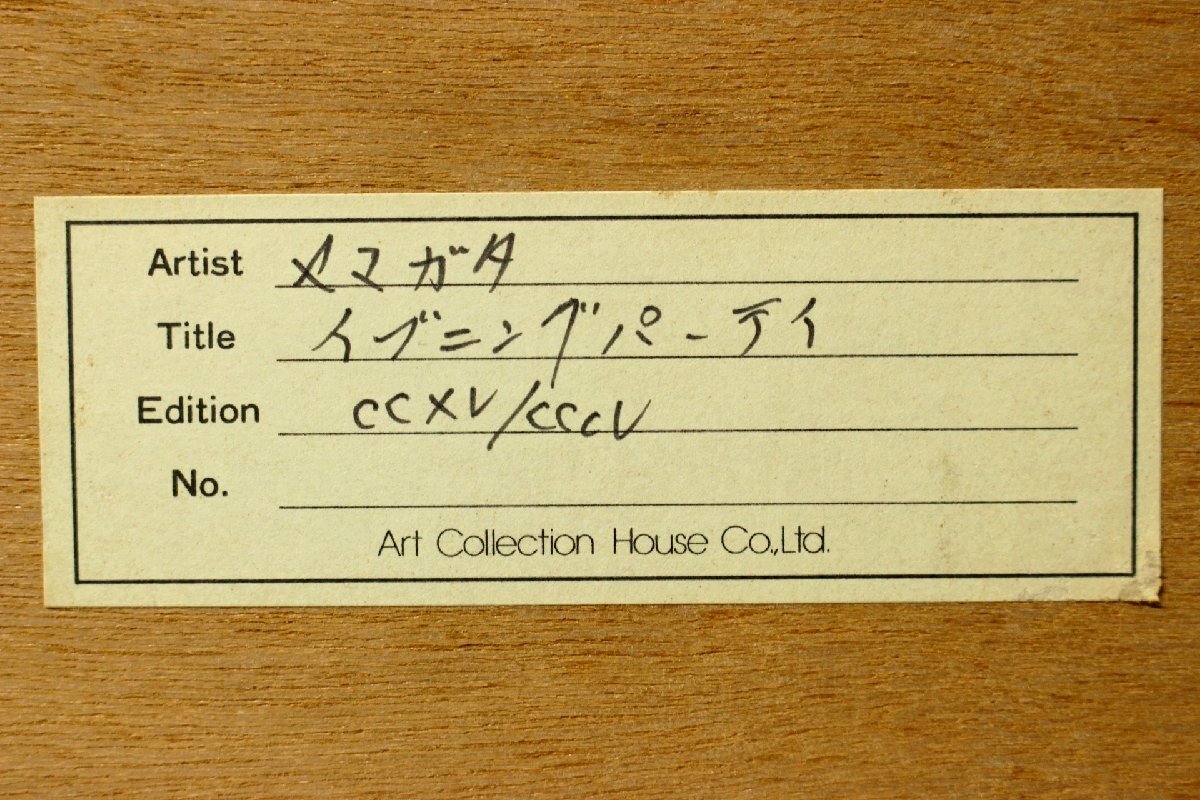 Artist ヤマガタ
Title イブニングパーティ
Edition CCXV/CCCV
No.
Art Collection House Co.,Ltd.